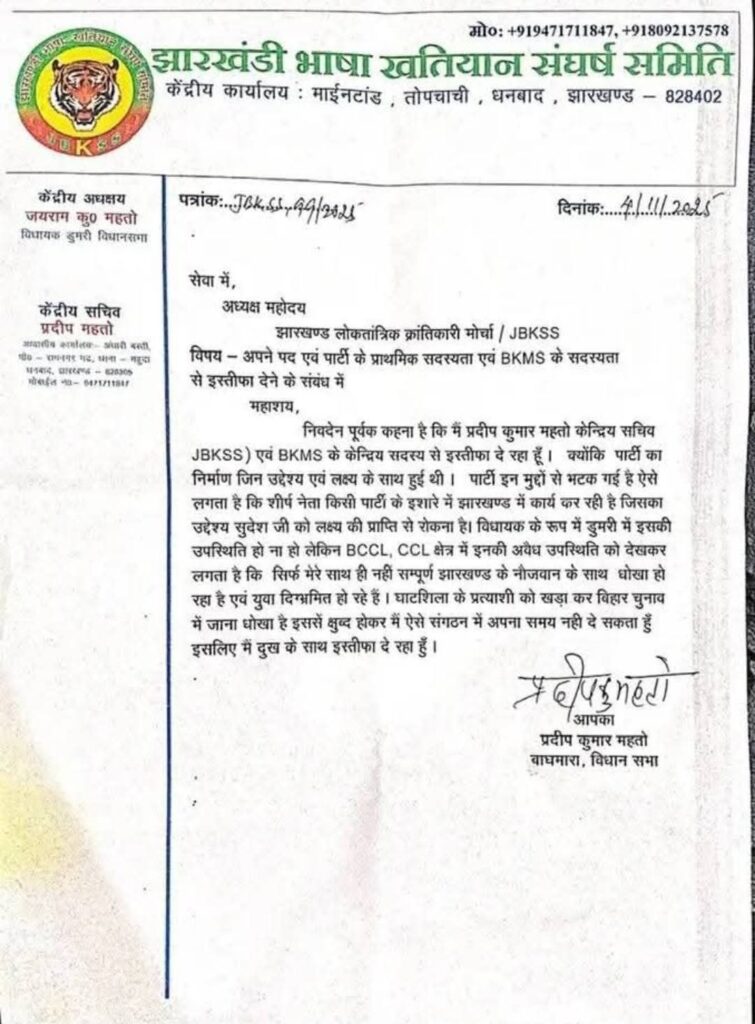 मो०: +919471711847, +918092137578
झारखंडी भाषा खतियान संघर्ष समिति
केंद्रीय कार्यालय : माईनटांड , तोपचाची , धनबाद , झारखण्ड – 828402
JBKSS
केंद्रीय अध्यक्षय
जयराम कु० महतो
विधायक डुमरी विधानसभा
केंद्रीय सचिव
प्रदीप महतो
पत्रांक:...JBKSS-99/2025
दिनांक:....4/11/2025
सेवा में,
अध्यक्ष महोदय
झारखण्ड लोकतांत्रिक क्रांतिकारी मोर्चा / JBKSS
विषय – अपने पद एवं पार्टी के प्राथमिक सदस्यता एवं BKMS के सदस्यता
से इस्तीफा देने के संबंध में
महाशय,
निवदेन पूर्वक कहना है कि मैं प्रदीप कुमार महतो केन्द्रिय सचिव
JBKSS) एवं BKMS के केन्द्रिय सदस्य से इस्तीफा दे रहा हूँ । क्योंकि पार्टी का
निर्माण जिन उद्देश्य एवं लक्ष्य के साथ हुई थी । पार्टी इन मुद्दों से भटक गई है ऐसे
लगता है कि शीर्ष नेता किसी पार्टी के इशारे में झारखण्ड में कार्य कर रही है जिसका
उद्देश्य सुदेश जी को लक्ष्य की प्राप्ति से रोकना है। विधायक के रूप में डुमरी में इसकी
उपस्थिति हो ना हो लेकिन BCCL, CCL क्षेत्र में इनकी अवैध उपस्थिति को देखकर
लगता है कि सिर्फ मेरे साथ ही नहीं सम्पूर्ण झारखण्ड के नौजवान के साथ धोखा हो
रहा है एवं युवा दिग्भ्रमित हो रहे हैं । घाटशिला के प्रत्याशी को खड़ा कर विहार चुनाव
में जाना धोखा है इससें क्षुब्द होकर मैं ऐसे संगठन में अपना समय नही दे सकता हुँ
इसलिए मैं दुख के साथ इस्तीफा दे रहा हुँ ।
प्रदीप कु महतो
आपका
प्रदीप कुमार महतो
बाघमारा, विधान सभा